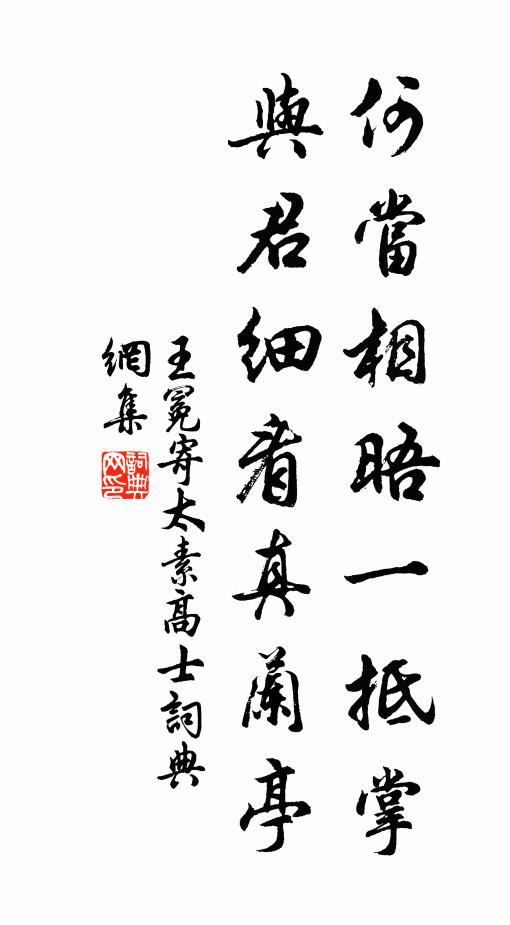 何當相晤一抵掌
與君細看真蘭亭
王冕寄太素高士詞典
網集
詞典網印